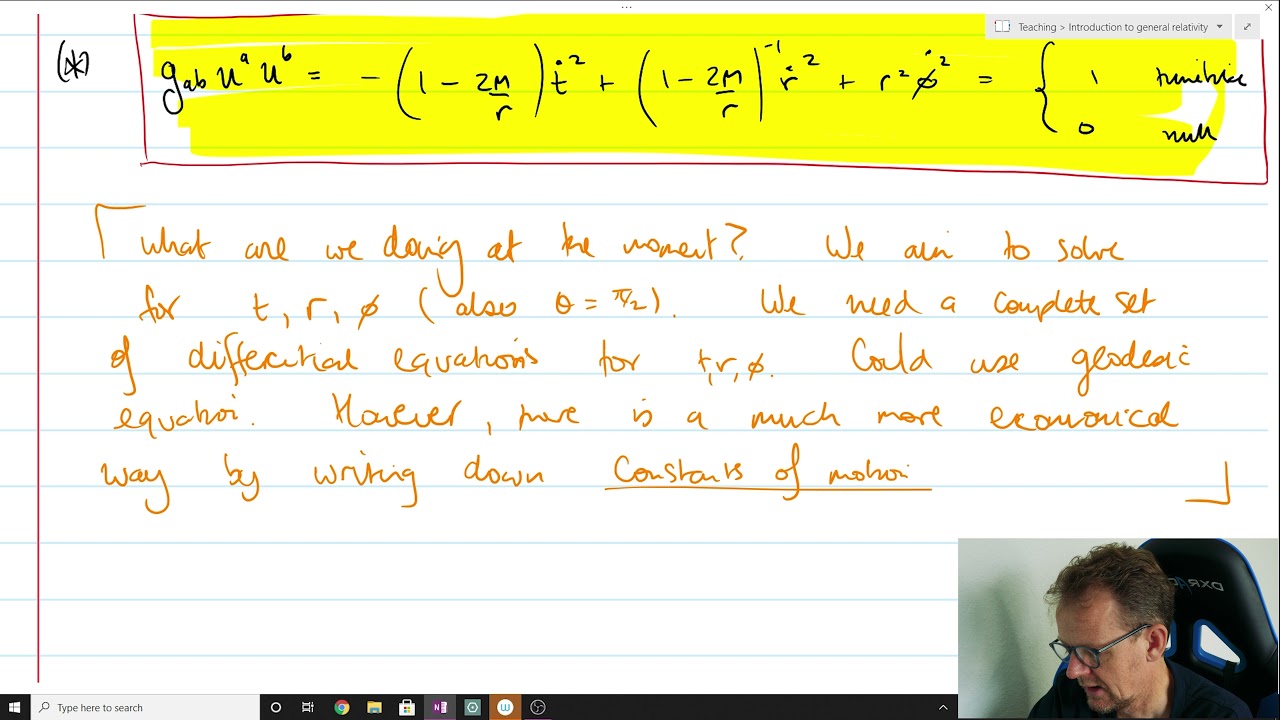 Teaching > Introduction to general relativity
(*) g_ab u^a u^b = - (1 - 2M/r) ṫ² + (1 - 2M/r)^-1 ṙ² + r² φ̇² = { 1 timelike
0 null
what are we doing at the moment? We aim to solve
for t, r, φ (also θ = π/2). We need a complete set
of differential equations for t, r, φ. Could use geodesic
equation. However, there is a much more economical
way by writing down Constants of motion
DXRACER
Type here to search